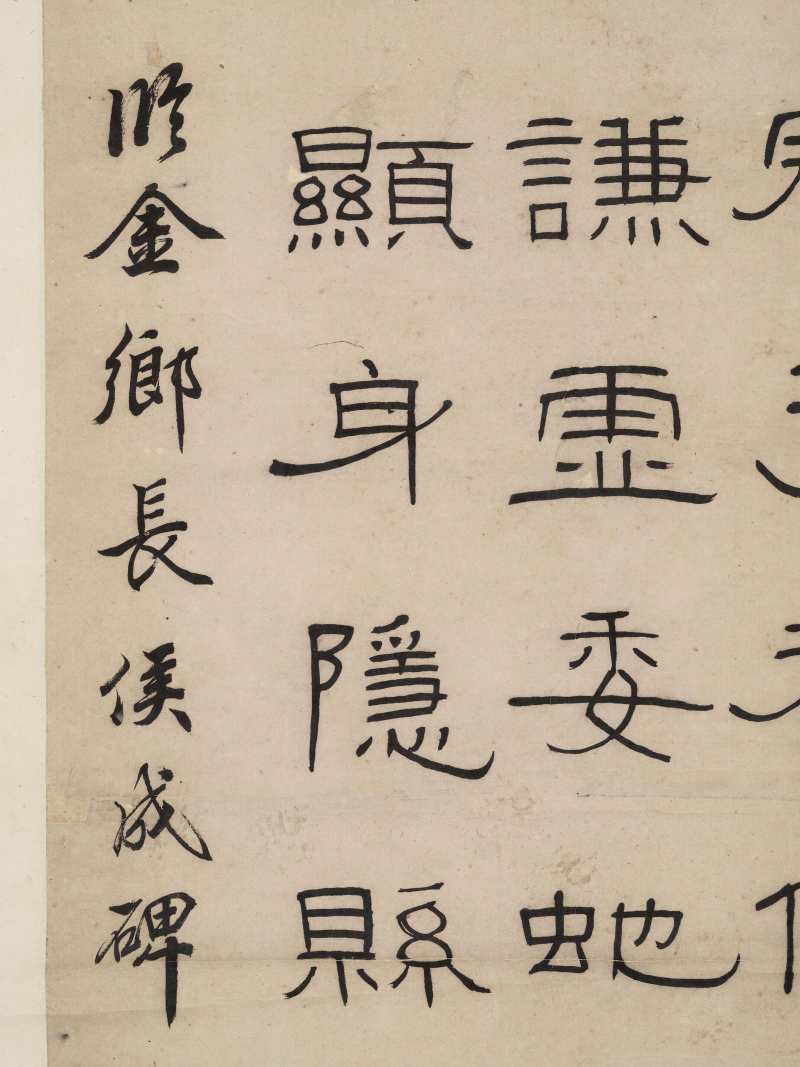 謙虛委虵
顯身隱縣
臨金鄉長侯成碑